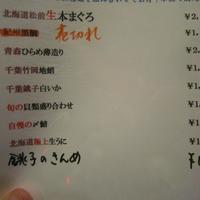 北海道松前生本まぐろ ¥2,
紀州黒鯛 売切れ ¥
青森ひらめ薄造り ¥2,
千葉竹岡地蛸 ¥1,
千葉銚子白いか ¥1,
旬の貝類盛り合わせ ¥1,
自慢の〆鯖 ¥1,
北海道極上生うに ¥1,
銚子のきんめ